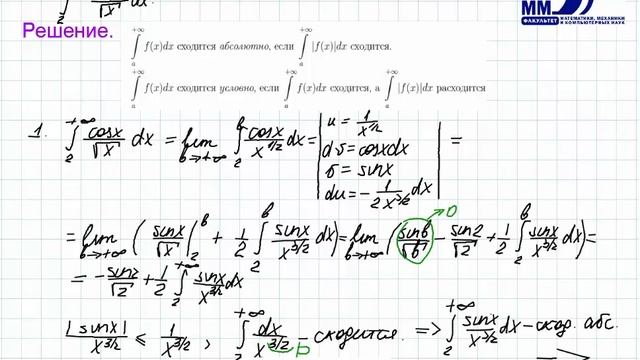 2 √x
ММ
ФАКУЛЬТЕТ
МАТЕМАТИКИ, МЕХАНИКИ
И КОМПЬЮТЕРНЫХ НАУК
Решение.
∫_a^{+∞} f(x)dx сходится абсолютно, если ∫_a^{+∞} |f(x)|dx сходится.
∫_a^{+∞} f(x)dx сходится условно, если ∫_a^{+∞} f(x)dx сходится, а ∫_a^{+∞} |f(x)|dx расходится
1. ∫_2^{+∞} cosx/√x dx = lim_{b→+∞} ∫_2^b cosx/x^{1/2} dx = | u = 1/x^{1/2}
dv = cosxdx
v = sinx
du = -1/(2x^{3/2}) dx | =
= lim_{b→+∞} ( sinx/√x |_2^b + 1/2 ∫_2^b sinx/x^{3/2} dx ) = lim_{b→+∞} ( sinb/√b → 0 - sin2/√2 + 1/2 ∫_2^b sinx/x^{3/2} dx ) =
= -sin2/√2 + 1/2 ∫_2^{+∞} sinx/x^{3/2} dx
|sinx|/x^{3/2} ≤ 1/x^{3/2}, ∫_2^{+∞} dx/x^{3/2} p - сходится. => ∫_2^{+∞} sinx/x^{3/2} dx - сход. абс.